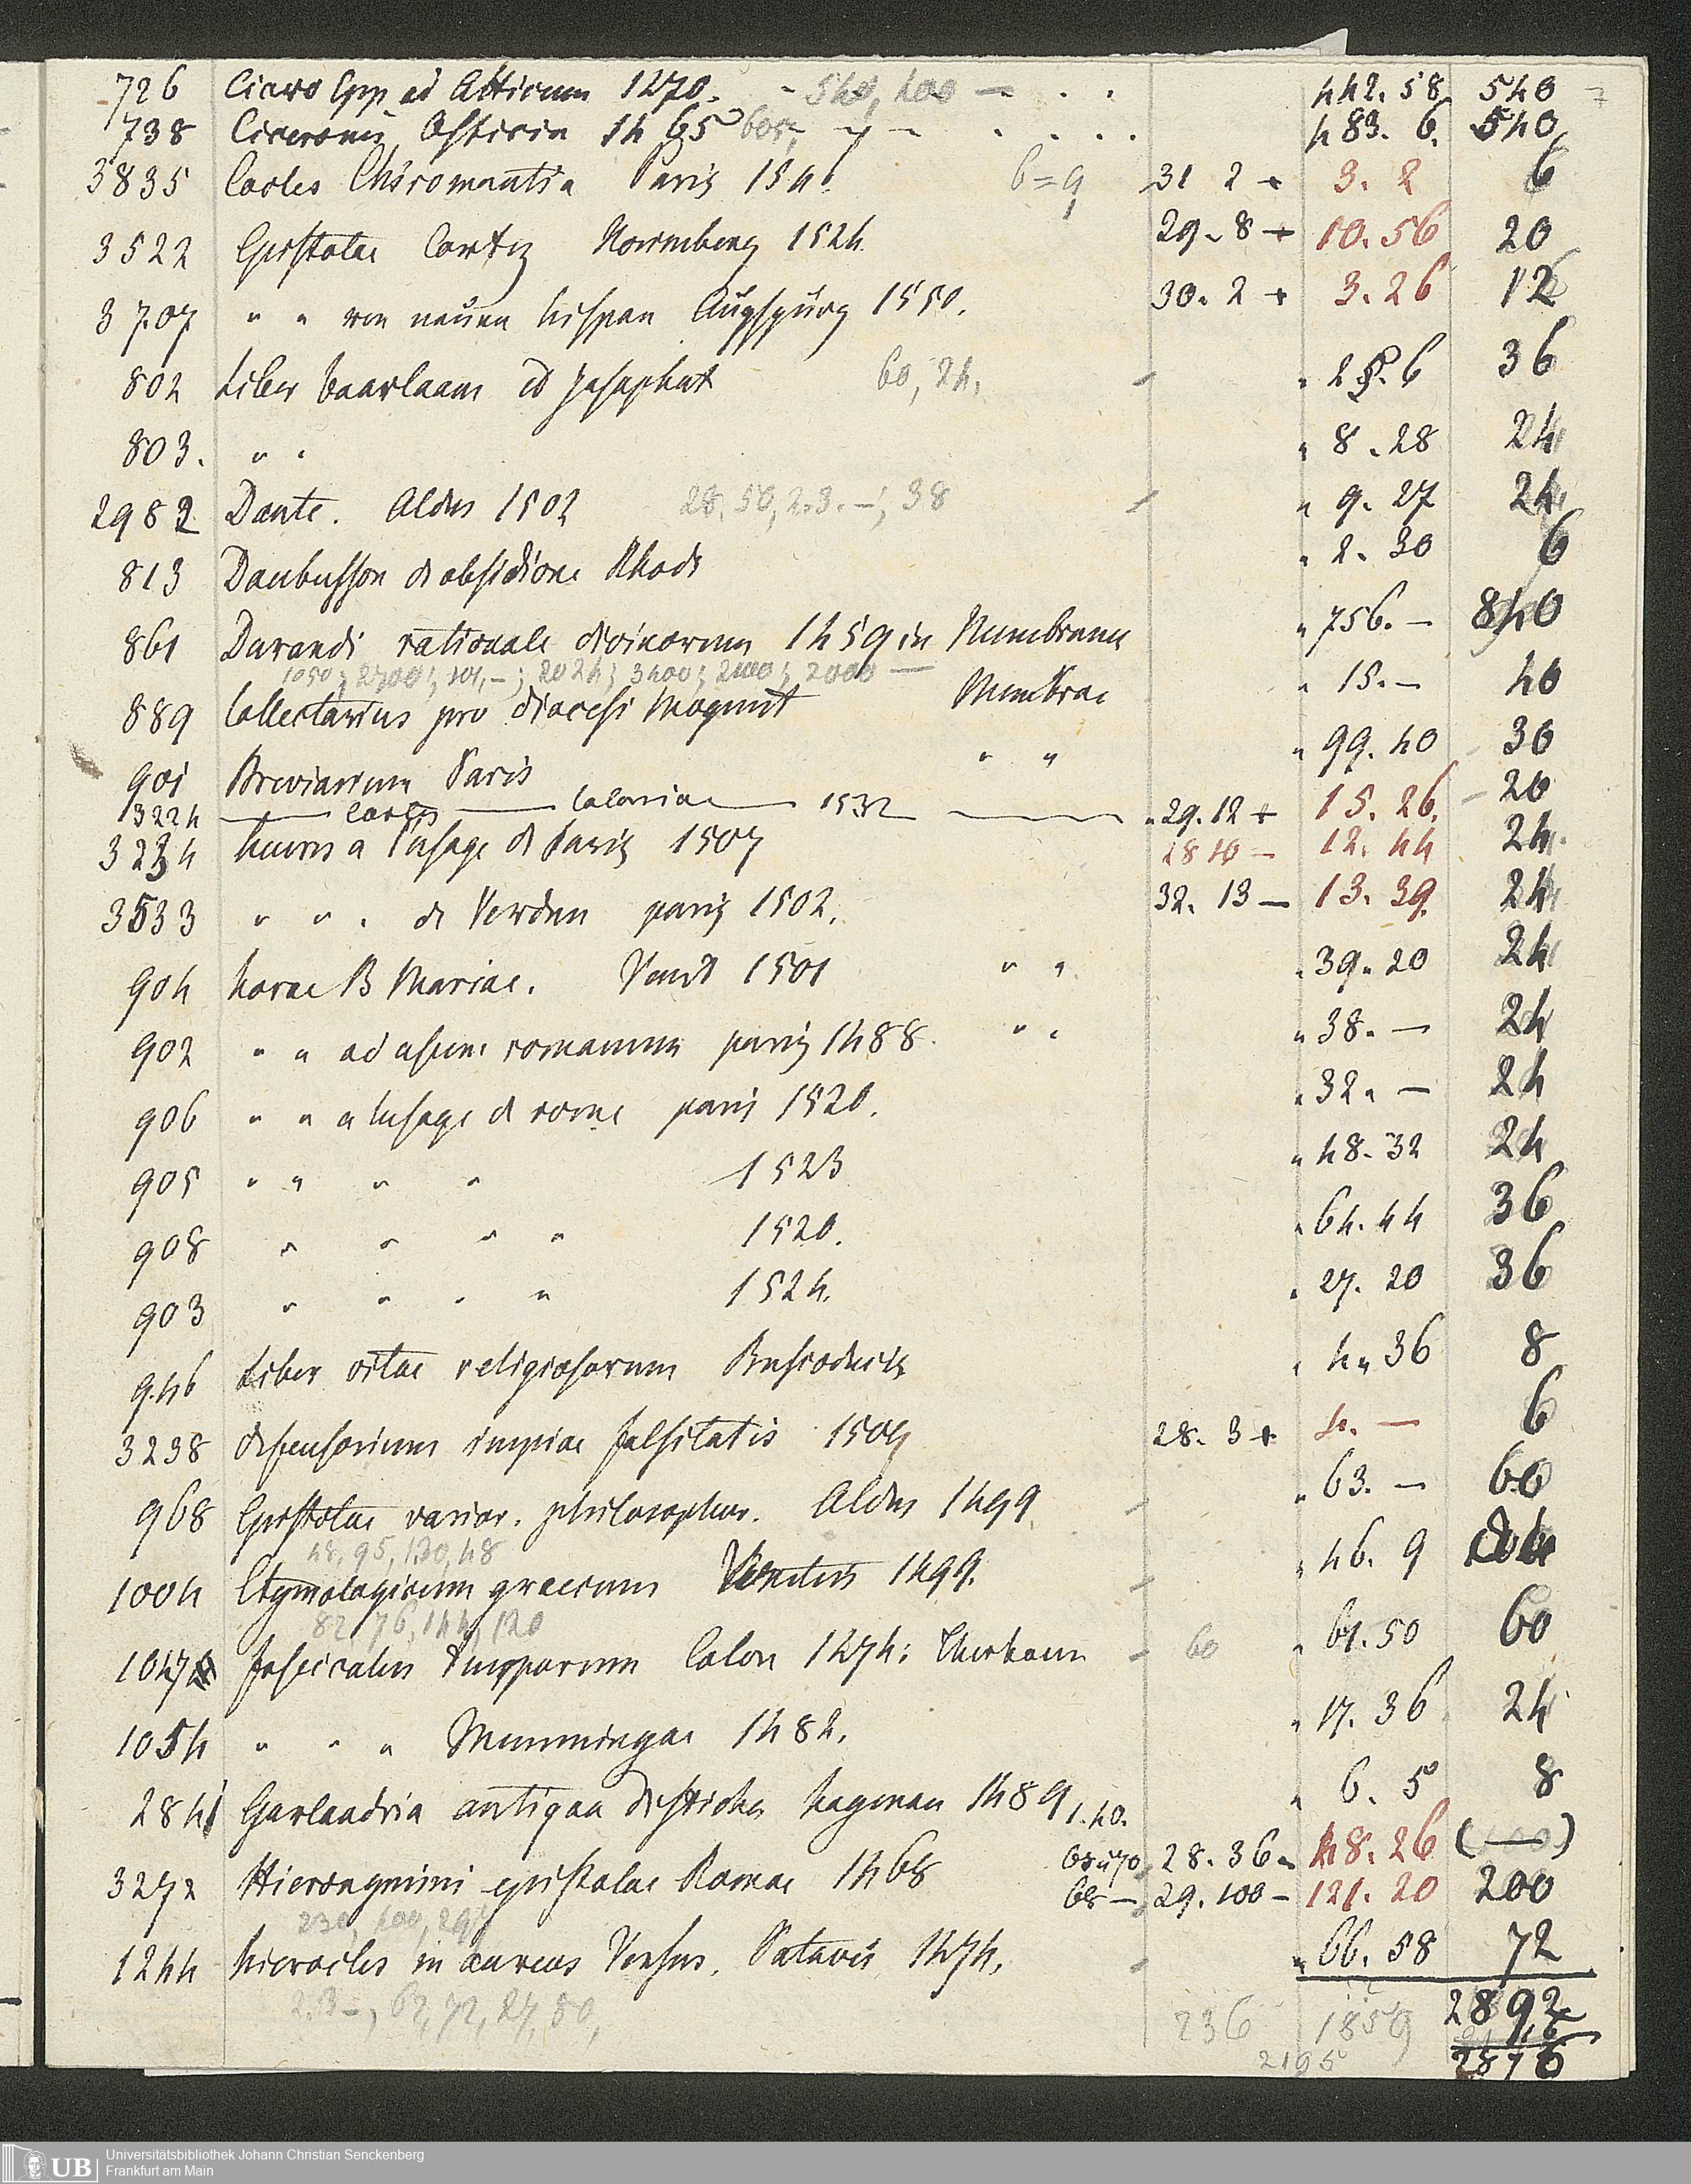 726 Cicero Epp ad Atticum 1470. - 540, 400 — . . 442.58 540
738 Ciceronis Officia 1465 605, — . . . . 483. 6. 540
3835 Cocles Chiromantia Paris 1546. 6=9 31 2 + 3. 2 6
3522 Epistolae Cortez Norimberg 1524. 29. 8 + 10. 56 20
3707 " " von neüen hispan Aügspürg 1550. 30. 2 + 3. 26 12
802 Liber baarlaam et Josaphat 60, 24, " 25. 6 36
803. " " " 8. 28 24
2982 Dante. Aldus 1502 28, 50, 2.3. —, 38 " 9. 27 24
813 Daubusson de obsidione Rhodi " 2. 30 6
861 Durandi rationale divinorum 1459 in Membrana " 756. — 840
1050; 2700; 101,—; 2024; 3400; 2100; 2000 —
889 Collectarius pro diocesi Mogunt Membrac " 15. — 40
901 Breviarium Paris " " " 99. 40 30
3224 — — Coloniae — 1532 — 29. 12 + 15. 26. 20
3234 heures a l'usage de Paris 1507 28 10 — 12. 44 24.
3533 " " . de Verdun paris 1502. 32. 13 — 13. 39. 24
904 horae B Mariae. Venet 1501 " " " 39. 20 24
902 " " ad usum romanum paris 1488. " " " 38. — 24
906 " " a lusage de rome paris 1520. " 32. — 24
905 " " " " 1523 " 48. 32 24
908 " " " " 1520. " 64. 44 36
903 " " " " 1524. " 27. 20 36
946 Liber vitae religiosorum " 4. 36 8
3238 defensorium impiae falsitatis 28. 3 + 4. — 6
968 Epistolae varior. philosophor. Aldus 1499 " 63. — 60
48, 95, 130, 48
1004 Etymologicum graecum Venetiis 1499. " 46. 9
82, 76, 144, 120
1047 fasciculus temporum Colon 1474: Therhoern 60 " 61. 50 60
1054 " " " Memmingae 1482. " 17. 36 24
2841 Garlandria antiqua disticha hagenau 1489 " 6. 5 8
1.40.
3272 Hieronymini epistolae Romae 1468 28. 36 — 48. 26 ( — )
68 — 29. 100 — 121. 20 200
1244 hierocles in aureos Versus. Patavii 1474. " 66. 58 72
2.3 —, 62, 72, 27, 80,
236 1859 2892
2195 2876
UB Universitätsbibliothek Johann Christian Senckenberg
Frankfurt am Main